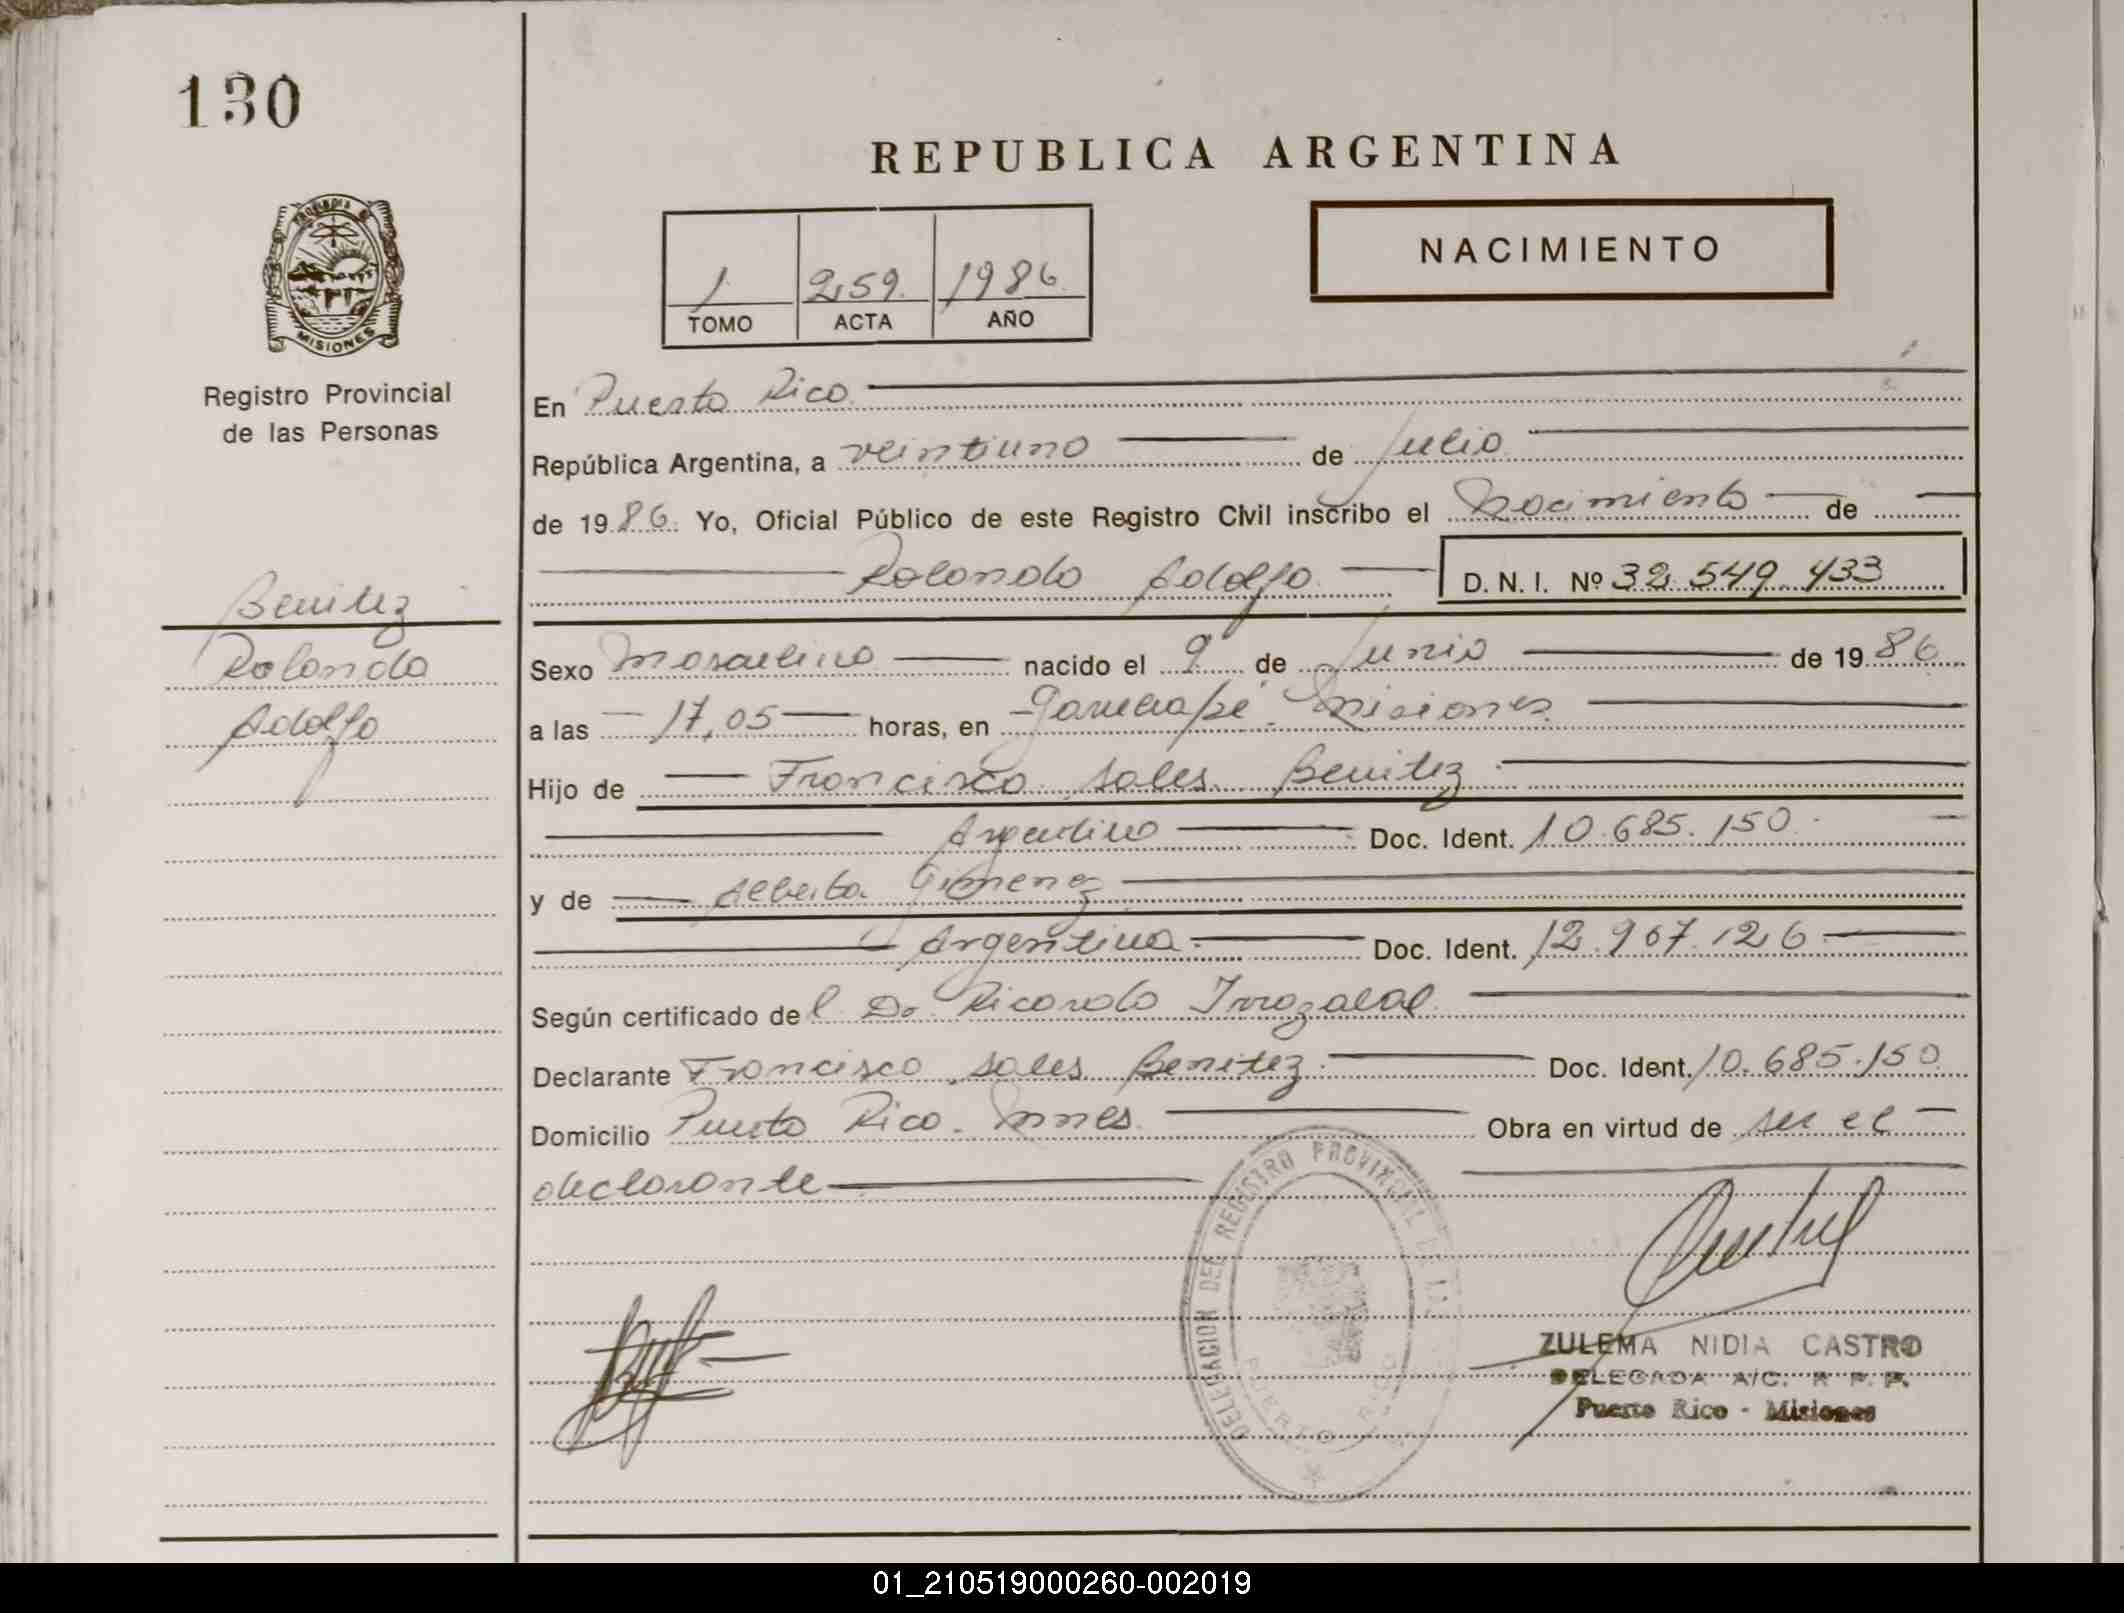 130
REPUBLICA ARGENTINA
NACIMIENTO
1 259 1986
TOMO ACTA AÑO
PROVINCIA DE
MISIONES
Registro Provincial
de las Personas
Benitez
Rolando
Adolfo
En Puerto Rico
República Argentina, a veintiuno de Julio
de 1986. Yo, Oficial Público de este Registro Civil inscribo el Nacimiento de
Rolando Adolfo D. N. I. Nº 32.549.433
Sexo Masculino nacido el 9 de Junio de 1986
a las 17,05 horas, en Garuhapé - Misiones
Hijo de Francisco Sales Benitez
Argentino Doc. Ident. 10.685.150
y de Alberta Gimenez
Argentina Doc. Ident. 12.907.126
Según certificado del Dr Ricardo Irrazabal
Declarante Francisco Sales Benitez Doc. Ident. 10.685.150
Domicilio Puerto Rico - Mnes Obra en virtud de ser el
declarante
DELEGACION DEL REGISTRO PROVINCIAL DE LAS
PUERTO RICO
ZULEMA NIDIA CASTRO
DELEGADA A/C. R. P. P.
Puerto Rico - Misiones
01_210519000260-002019